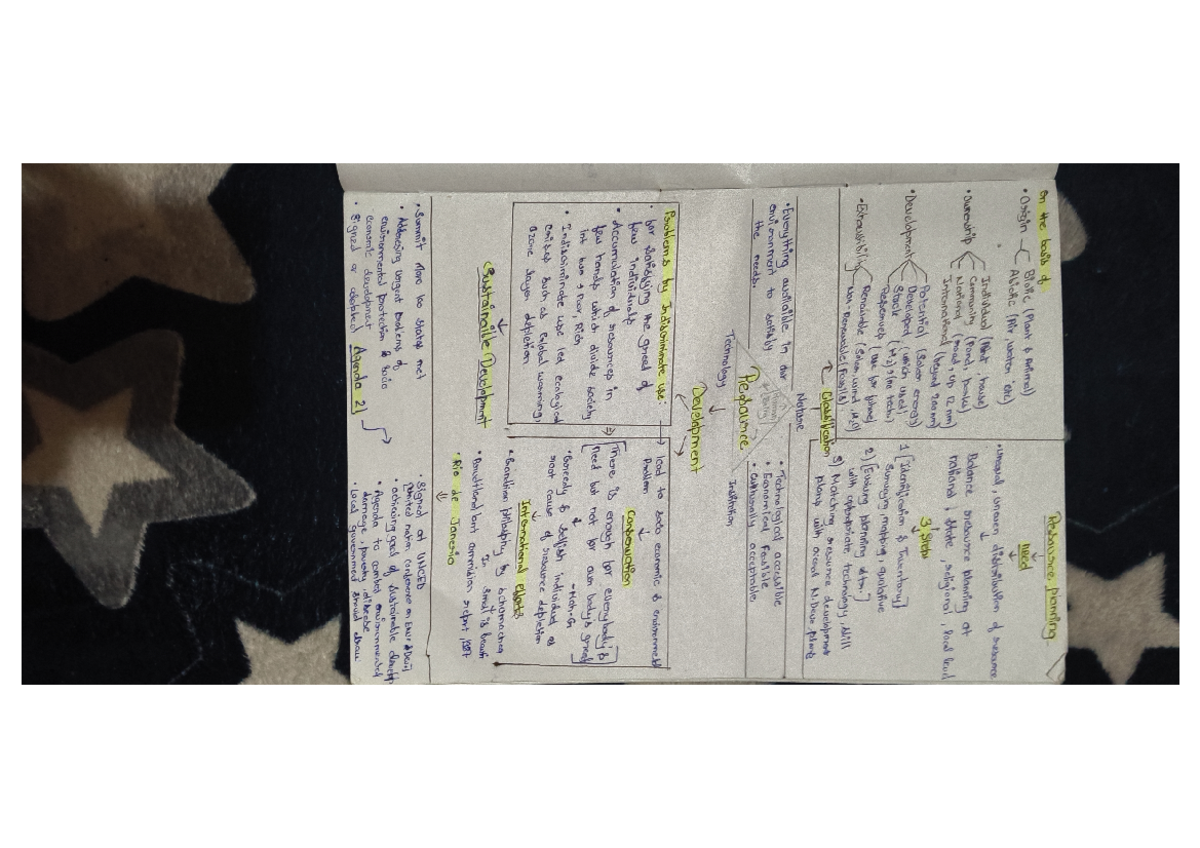 on the basis of
• Origin
Biotic (Plant & Animal)
Abiotic (Air, water etc)
• Ownership
Individual (Plot house)
Community (Pond, books)
National (road, up 12 nm)
International (beyond 200nm)
• Development
Potential (Solar energy)
Developed (which used)
Stock (H2 & no tech)
Reserved (use for future)
• Exhaustibility
Renewable (Solar, wind, H2O)
Non-Renewable (Fossils)
Classification
Resource planning
Need
• Unequal, uneven distribution of resource
Balance resource planning at
national, state, regional, local level
3 steps
1 [Identification & Inventory]
Surveying mapping, qualitive
2) [Evolving planning
with appropriate technology, skill
3) Matching resource development
plans with N. Deve. plans
• Everything available in our
environment to satisfy
the needs.
Nature
Human
Resource
Technology
Institution
• Technological accessible
• Economical feasible
• Culturally acceptable.
Development
Problems by Indiscriminate use:
• for satisfying the greed of
few individuals
• Accumulation of resources in
few hands which divide society
int two & Poor, Rich
• Indiscriminate use led ecological
crises such as Global warming,
ozone layer depletion
lead to socio economic & environmental
Problem
Conservation
[There is enough for everybody's
Need but not for any body's greed]
-Mah. Gn
• Greedy & selfish individual as
root cause of resource depletion
International efforts
• Gandhian philosphy by schumacher
In small is beauti
• Brundtland report, 1987
• Rio de Janerio
Sustainaible Development
• Summit more 100 states met
• Addresing urgent problems of
environmental protection & socio
economic development
• signed or adopted Agenda 21
• Signed at UNCED
(United nation conference on Envir & Dev)
• achieving goal of sustainable
• Agenda to combat environmental
damage, poverty, disease
• Local government should draw